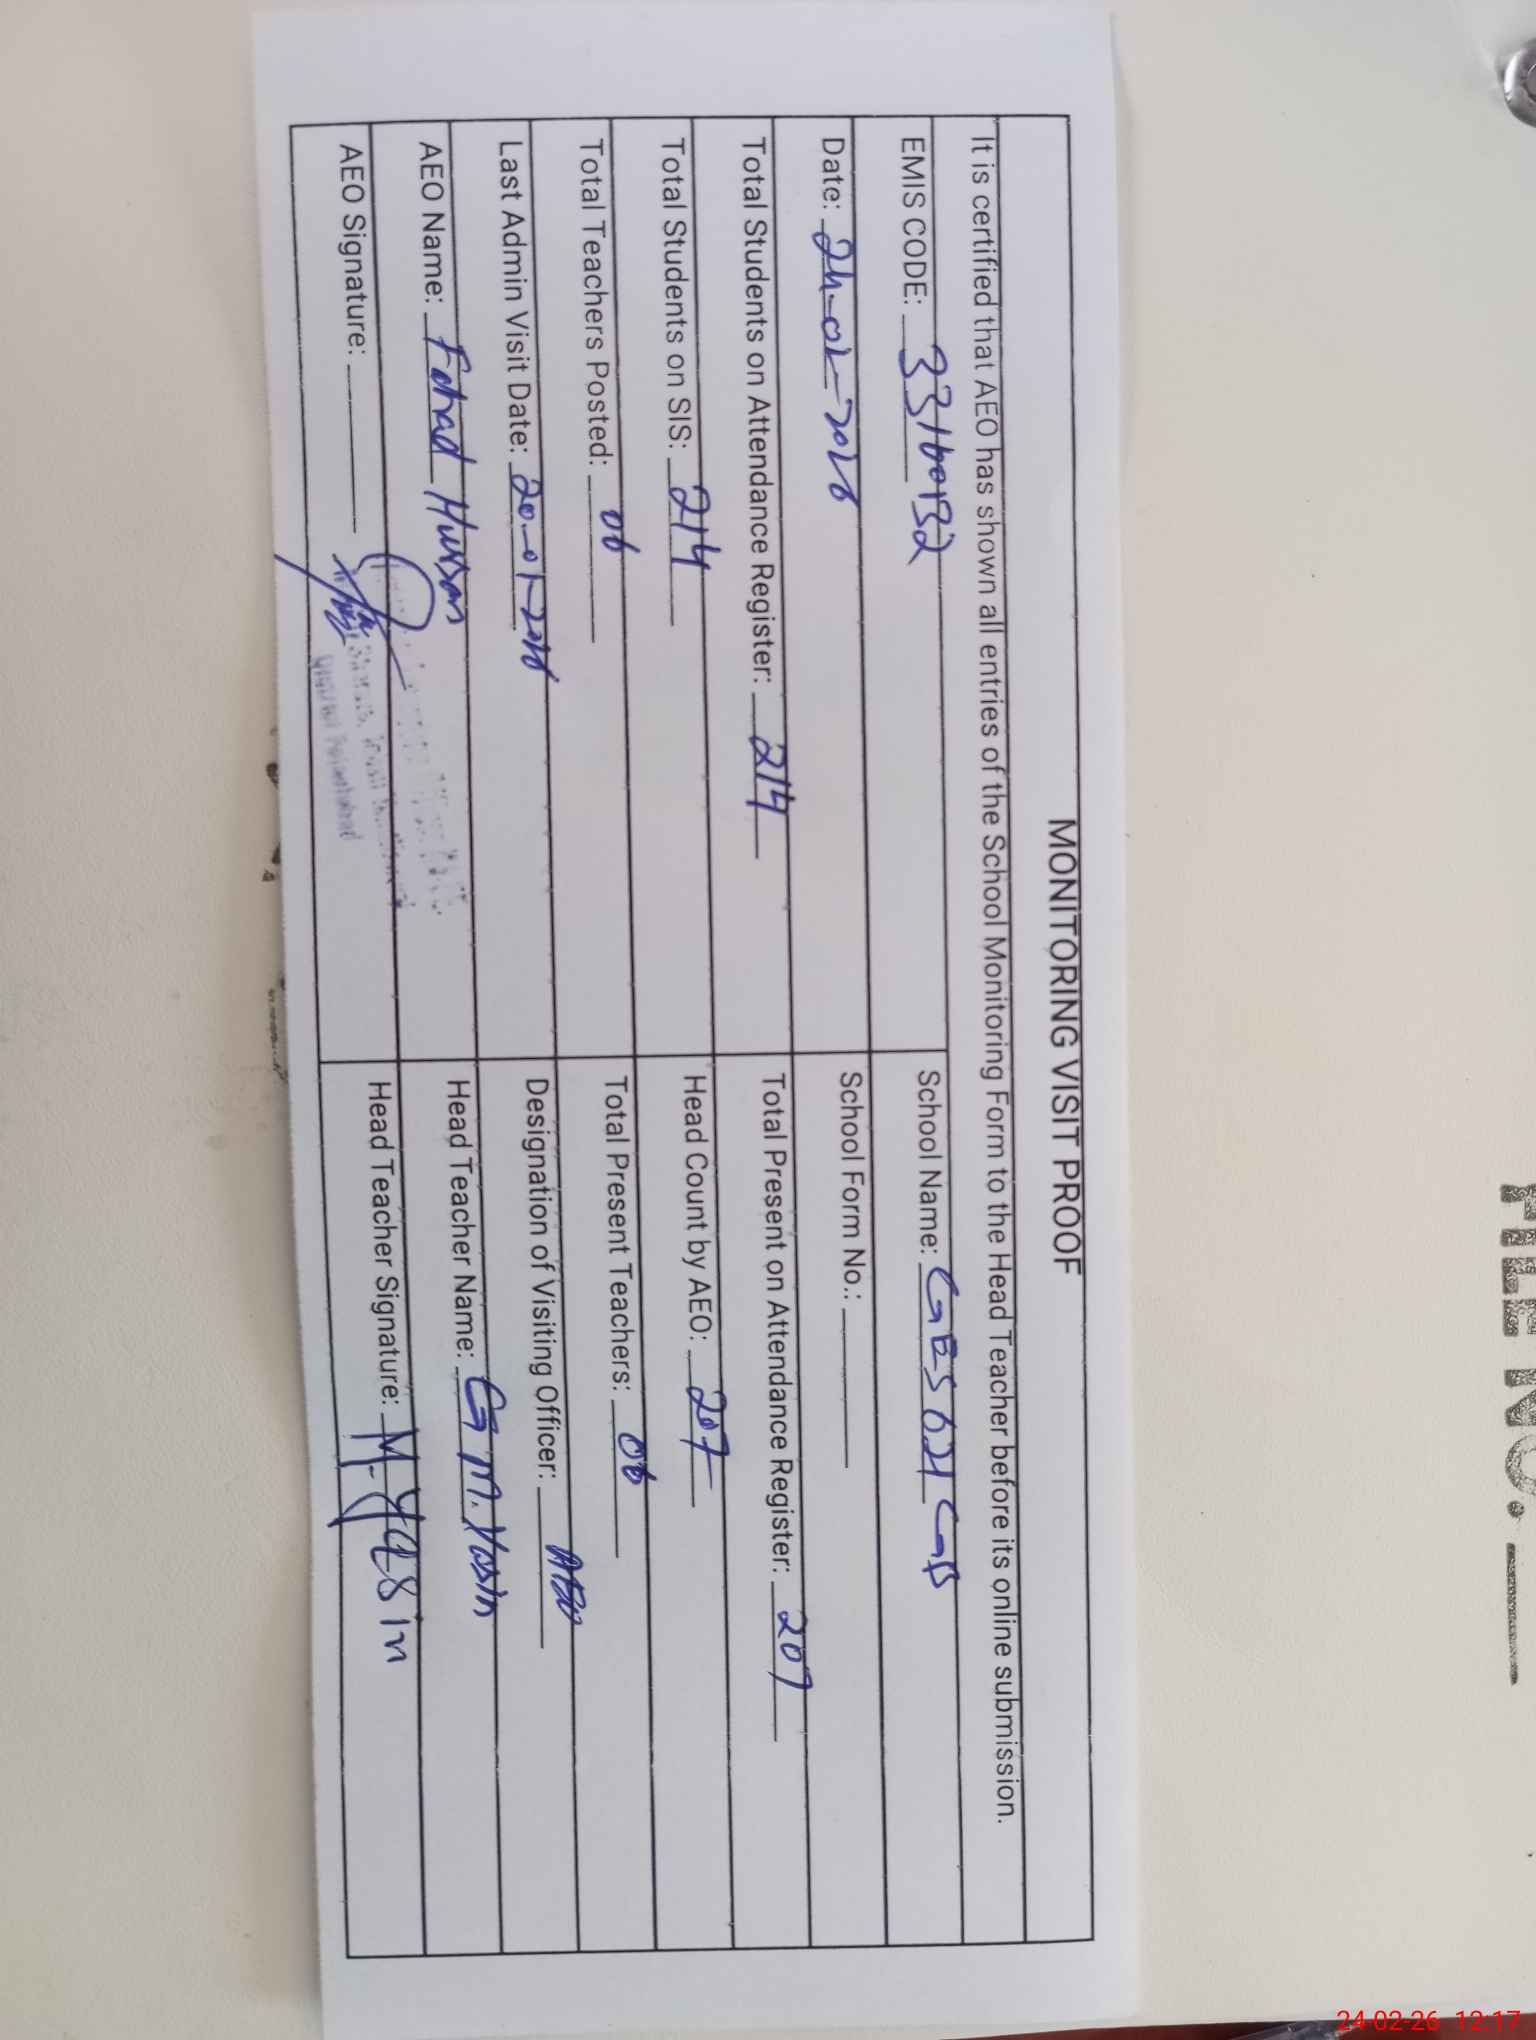 MONITORING VISIT PROOF
It is certified that AEO has shown all entries of the School Monitoring Form to the Head Teacher before its online submission.
EMIS CODE: 33160132 School Name: GES 621 GB
Date: 24-02-2026 School Form No.:
Total Students on Attendance Register: 214 Total Present on Attendance Register: 207
Total Students on SIS: 214 Head Count by AEO: 207
Total Teachers Posted: 06 Total Present Teachers: 06
Last Admin Visit Date: 20-01-2026 Designation of Visiting Officer: AEO
AEO Name: Fahad Hussan Head Teacher Name: G M. Yasin
AEO Signature: Head Teacher Signature: M. Yasin
FILE NO.
24-02-26 12:17